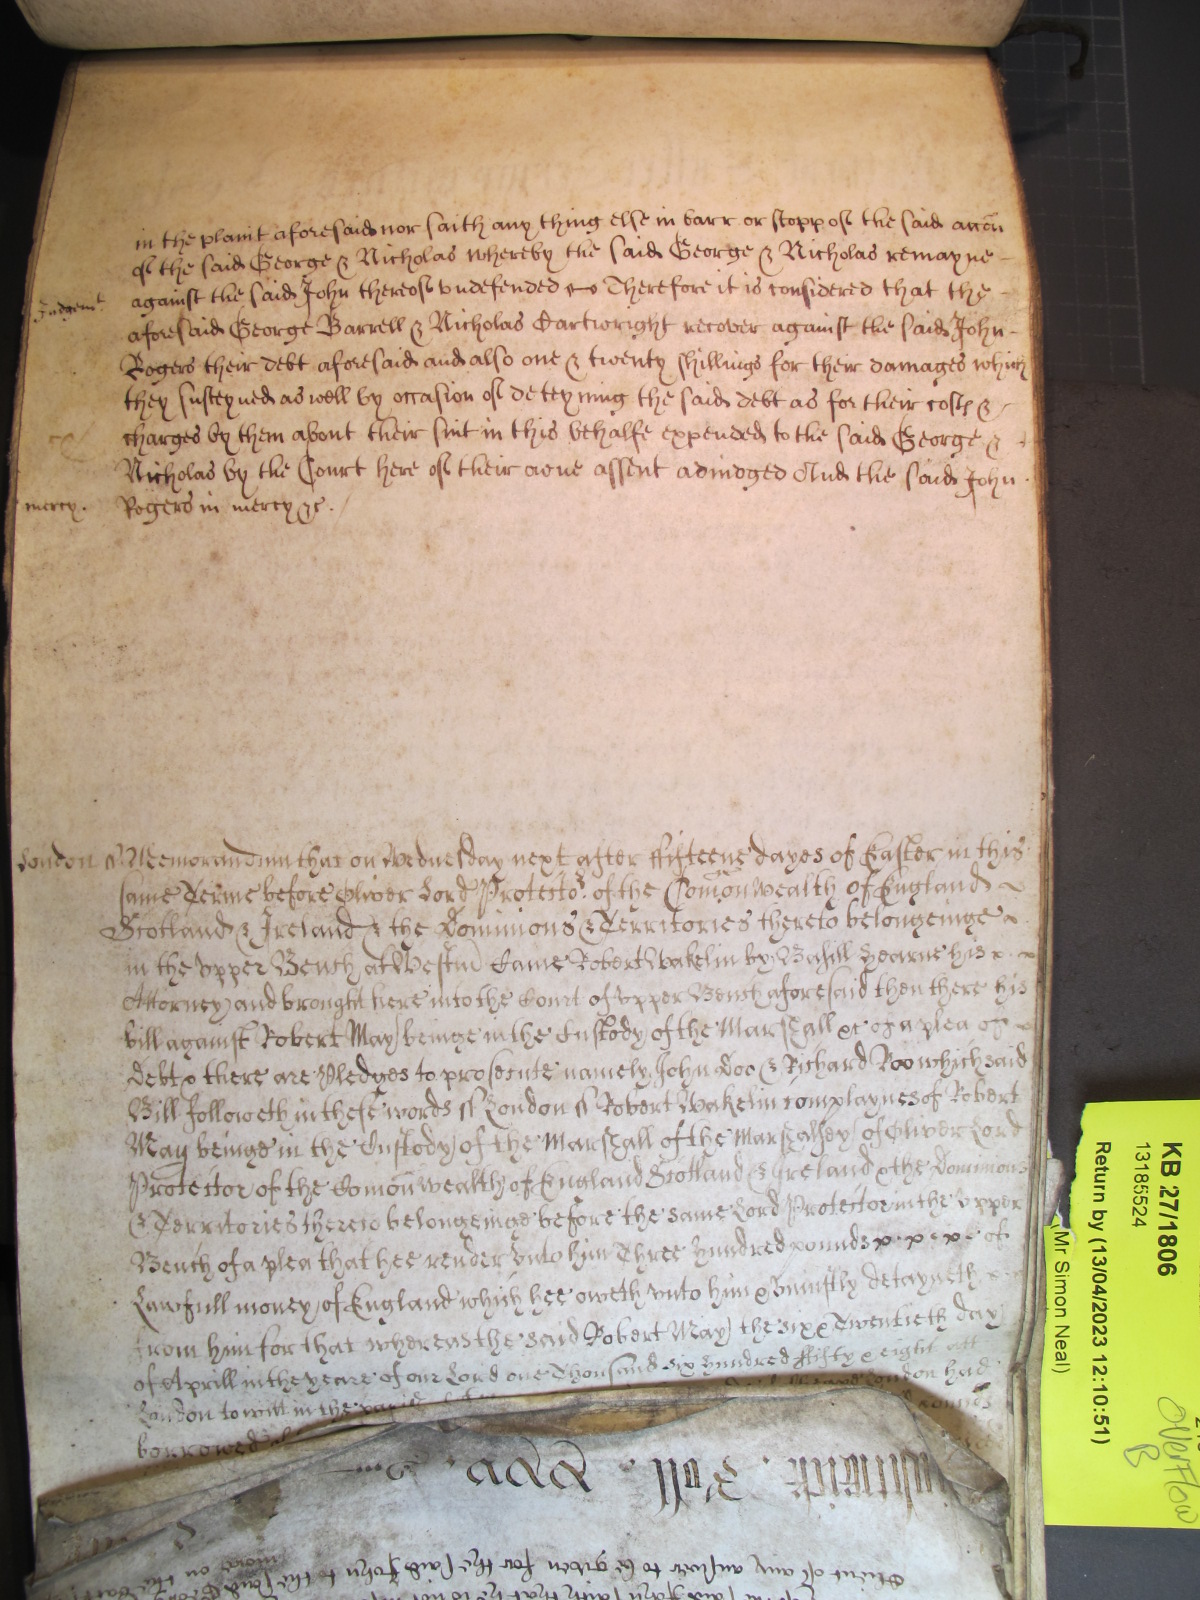 in the plaint aforesaid nor saith any thing else in barr or stopp of the said accōn
of the said George & Nicholas whereby the said George & Nicholas remayne
Judgemt
against the said John thereof undefended Therefore it is considered that the
aforesaid George Barrell & Nicholas Cartwright recover against the said John
Rogers their debt aforesaid and also one & twenty shillings for their damages which
they susteyned as well by occasion of deteyning the said debt as for their costs &
charges by them about their suit in this behalfe expended to the said George &
Nicholas by the Court here of their owne assent adiudged And the said John
mercy.
Rogers in mercy &c.
London ss Memorandum that on Wednesday next after ffifteene dayes of Easter in this
same Terme before Oliver Lord Protector of the Comōn Wealth of England
Scotland & Ireland & the Dominions & Territories thereto belongeinge
in the upper Bench at Westm̄ Came Robert Wakelin by Basill Hearne his
Attorney and brought here into the Court of upper Bench aforesaid then there his
bill against Robert May beinge in the Custody of the Marshall &c of a plea of
debt & there are Pledges to prosecute namely John Doo & Richard Roo which said
Bill followeth in these words ss London ss Robert Wakelin complaynes of Robert
May beinge in the Custody of the Marshall of the Marshalsey of Oliver Lord
Protector of the Comōn wealth of England Scotland & Ireland & the Dominions
& Territories thereto belongeinge before the same Lord Protector in the upper
Bench of a plea that hee render unto him Three hundred pounds of
Lawfull money of England which hee oweth unto him & Uniustly detayneth
from him for that whereas the said Robert May the six & Twentieth day
of Aprill in the yeare of our Lord one Thousand six hundred ffifty & eight att
London to witt in the London had
borrowed pounds
Roll
KB 27/1806
13185524
Return by (13/04/2023 12:10:51)
Mr Simon Neal)
Overflow
B